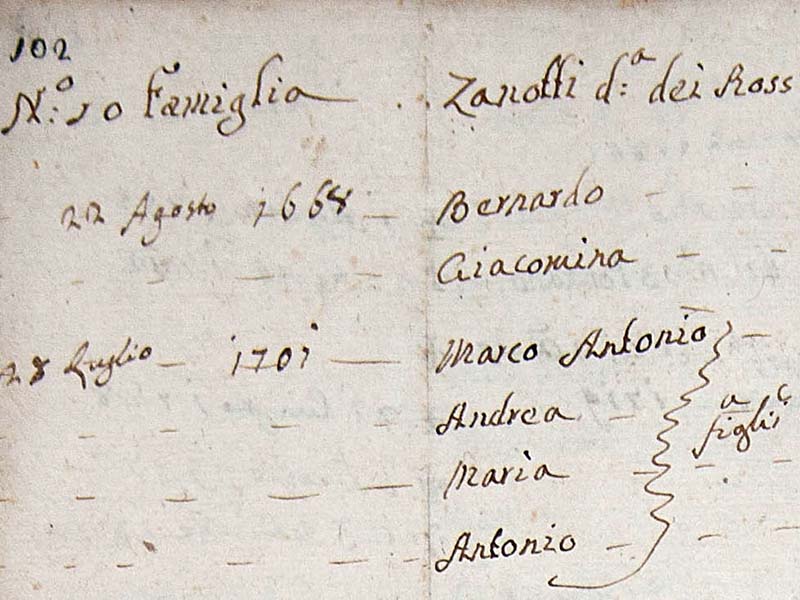 102
N:º 10 Famiglia - . . Zanotti d:ª dei Ross
22 Agosto 1668 - Bernardo - -
- - - - Giacomina - - -
28 Luglio - 1701 - Marco Antonio -
- - - - Andrea - a figli
- - - - - Maria - - -
- - - - - Antonio - - -